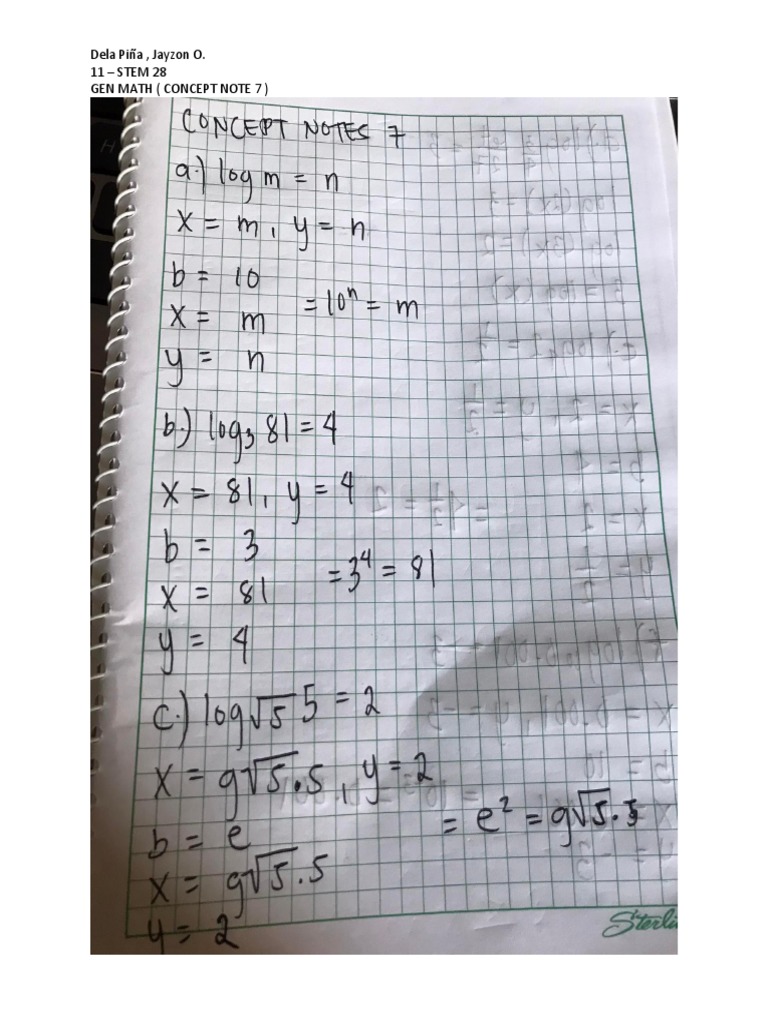 Dela Piña , Jayzon O.
11 – STEM 28
GEN MATH ( CONCEPT NOTE 7 )
CONCEPT NOTES 7
a.) log m = n
x = m, y = n
b = 10
x = m
y = n
= 10ⁿ = m
b.) log₃ 81 = 4
x = 81, y = 4
b = 3
x = 81
y = 4
= 3⁴ = 81
c.) log√5 5 = 2
x = g√5.5, y = 2
b = e
x = g√5.5
y = 2
= e² = g√5.5